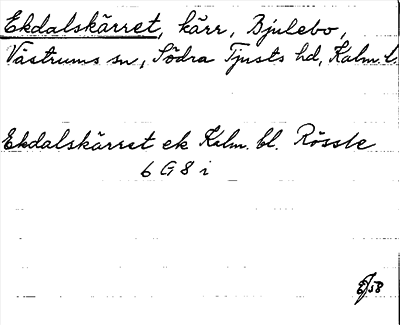 Ekdalskärret, kärr, Bjulebo,
Västrums sn, Södra Tjusts hd, Kalm. l.
Ekdalskärret ek Kalm. bl. Rössle
6 G 8 i
/58